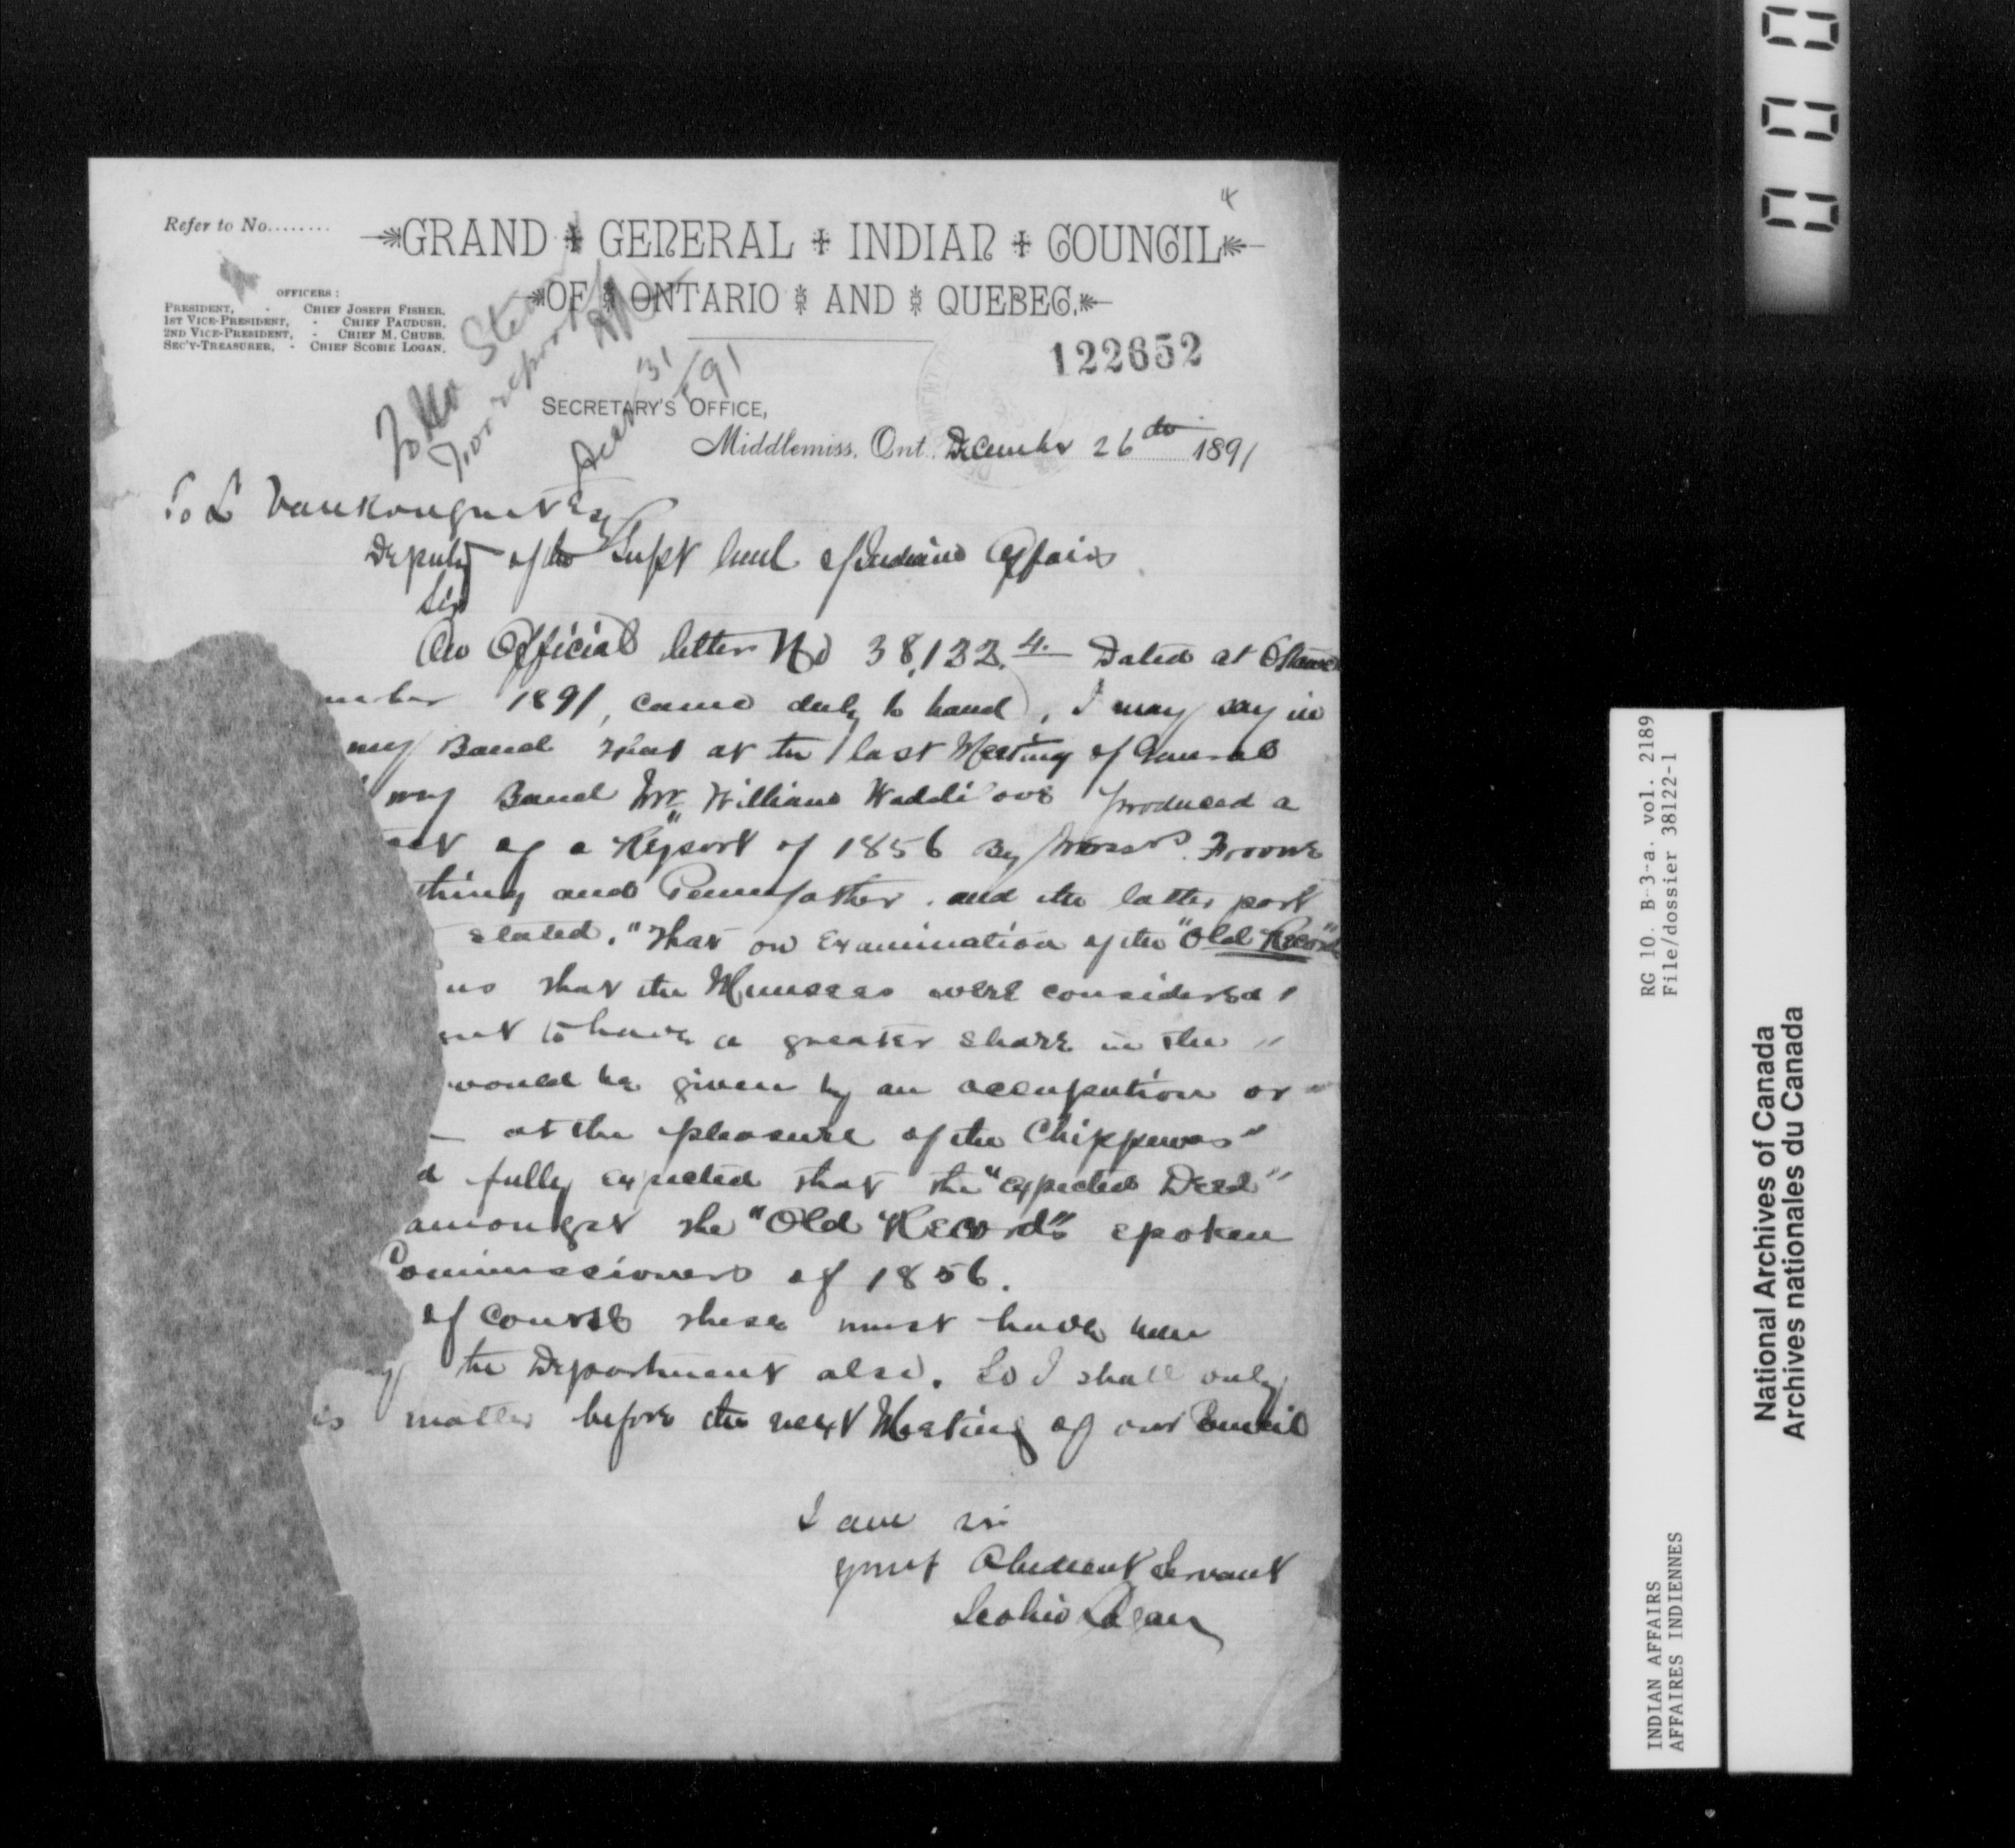 4
Refer to No........
GRAND GENERAL INDIAN COUNCIL
OF ONTARIO AND QUEBEC.
OFFICERS:
PRESIDENT, - CHIEF JOSEPH FISHER.
1ST VICE-PRESIDENT, - CHIEF PAUDUSH.
2ND VICE-PRESIDENT, - CHIEF M. CHUBB.
SEC'Y-TREASURER, - CHIEF SCOBIE LOGAN.
To Mr Stewart
for report
31
/91
122652
SECRETARY'S OFFICE,
Middlemiss, Ont. December 26th 1891
To L Vankoughnet Esq
Deputy of the Supt Genl of Indian Affairs
Sir
An Official letter No 38,122.4 Dated at Ottawa
mber 1891, came duly to hand, I may say in
my Band that at the last Meeting of General
my Band Mr. William Waddilove produced a
of a Report of 1856 By Messrs. Froome
thing and Pennefather. and the latter part
stated. "That on Examination of the "Old Records"
us that the Munsees were considered
ent to have a greater share in the "
would be given by an occupation or "
at the pleasure of the Chippewas"
d fully expected that the "expected Deed"
amongst the "Old Records" spoken
Commissioners of 1856.
of course these must have been
the Department also. So I shall only
is matter before the next Meeting of our Council
I am sir
your Obedient Servant
Scobie Logan
000
RG 10. B-3-a. vol. 2189
File/dossier 38122-1
INDIAN AFFAIRS
AFFAIRES INDIENNES
National Archives of Canada
Archives nationales du Canada